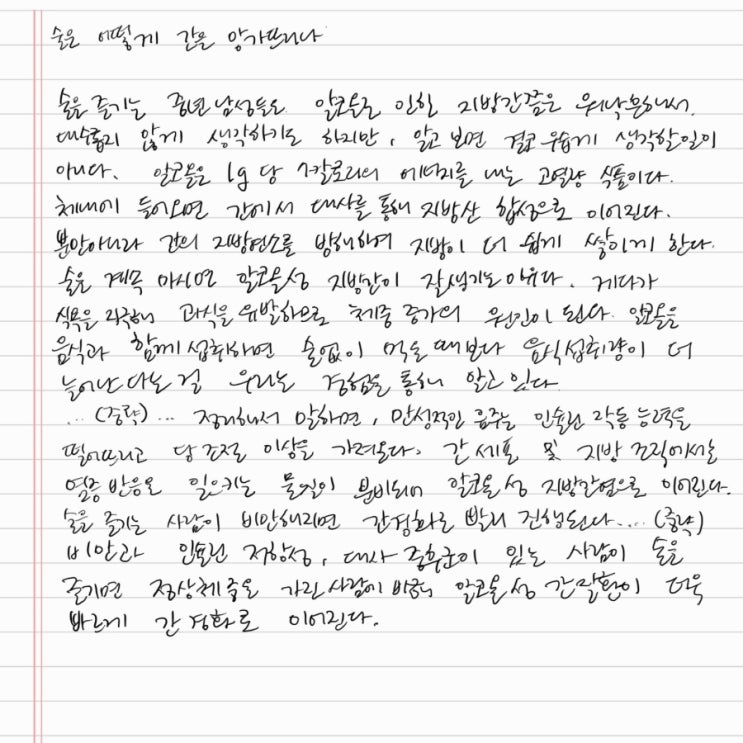 술은 어떻게 간을 망가뜨리나
술을 즐기는 중년 남성들은 알코올로 인한 지방간쯤은 워낙 흔해서
대수롭지 않게 생각하기도 하지만, 알고 보면 결코 우습게 생각할 일이
아니다. 알코올은 1g 당 7칼로리의 에너지를 내는 고열량 식품이다.
체내에 들어오면 간에서 대사를 통해 지방산 합성으로 이어진다.
뿐만아니라 간의 지방연소를 방해하여 지방이 더 쉽게 쌓이게 한다.
술을 계속 마시면 알코올성 지방간이 잘생기는 이유다. 게다가
식욕을 자극해 과식을 유발하므로 체중 증가의 원인이 된다. 알코올을
음식과 함께 섭취하면 술없이 먹을 때보다 음식섭취량이 더
늘어난다는 걸 우리는 경험을 통해 알고 있다
...(중략)... 정리해서 말하면, 만성적인 음주는 인슐린 작동 능력을
떨어뜨리고 당 조절 이상을 가져온다. 간 세포 및 지방 조직에서는
염증 반응을 일으키는 물질이 분비되어 알코올성 지방간염으로 이어진다.
술을 즐기는 사람이 비만해지면 간경화로 빨리 진행된다....(중략)
비만과 인슐린 저항성, 대사 증후군이 있는 사람이 술을
즐기면 정상체중을 가진 사람에 비해 알코올성 간질환이 더욱
빠르게 간경화로 이어진다.